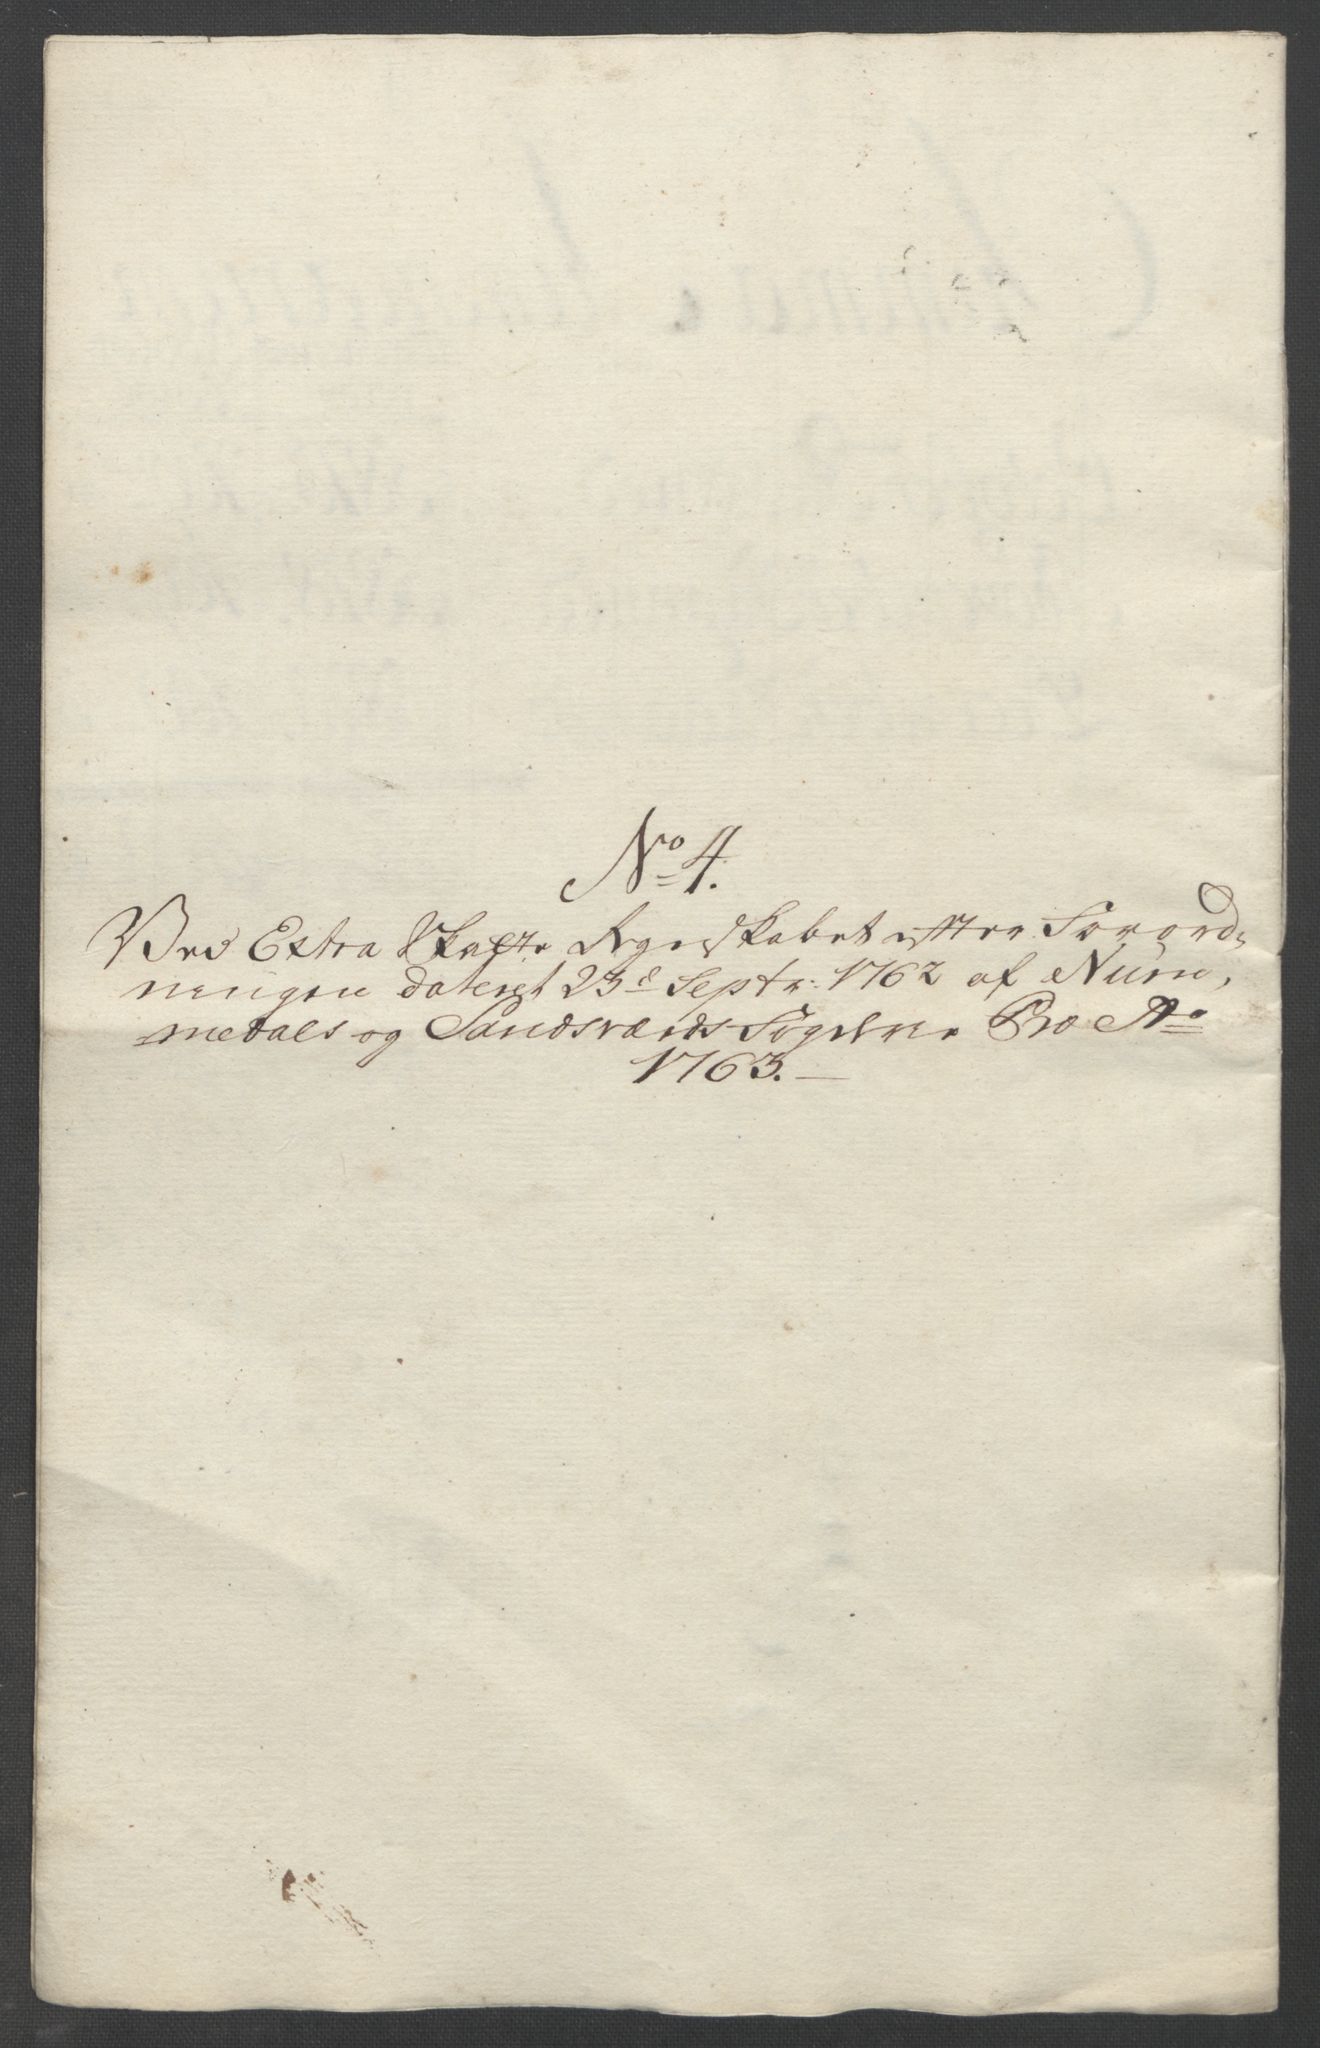 No 4.
Ved Extra Skatte Regnskabet efter Forord-
ningen dateret 23d Septr: 1762 af Num-
medals og Sandsværds Fogderie Pro Ao
1763.